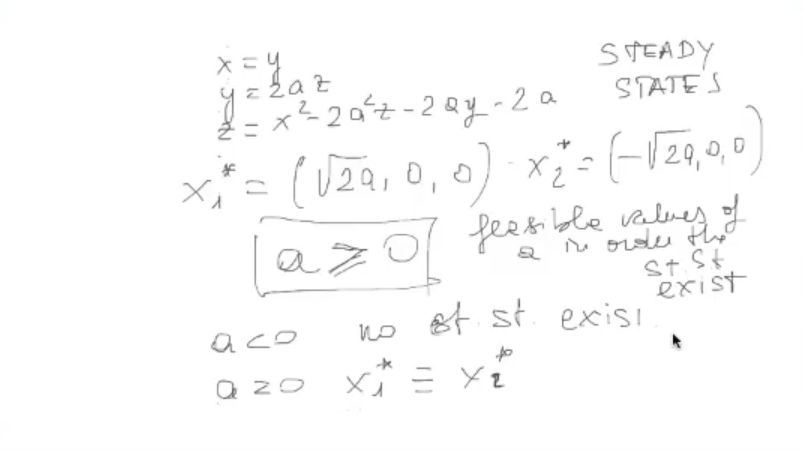 x = y
y = 2az
z = x² - 2a²z - 2ay - 2a
STEADY
STATES
x₁* = (√2a, 0, 0) · x₂* = (-√2a, 0, 0)
a ⩾ 0
feesible values of
a in order the
st. st
exist
a<0 no st. st. exist
a=0 x₁* ≡ x₂*